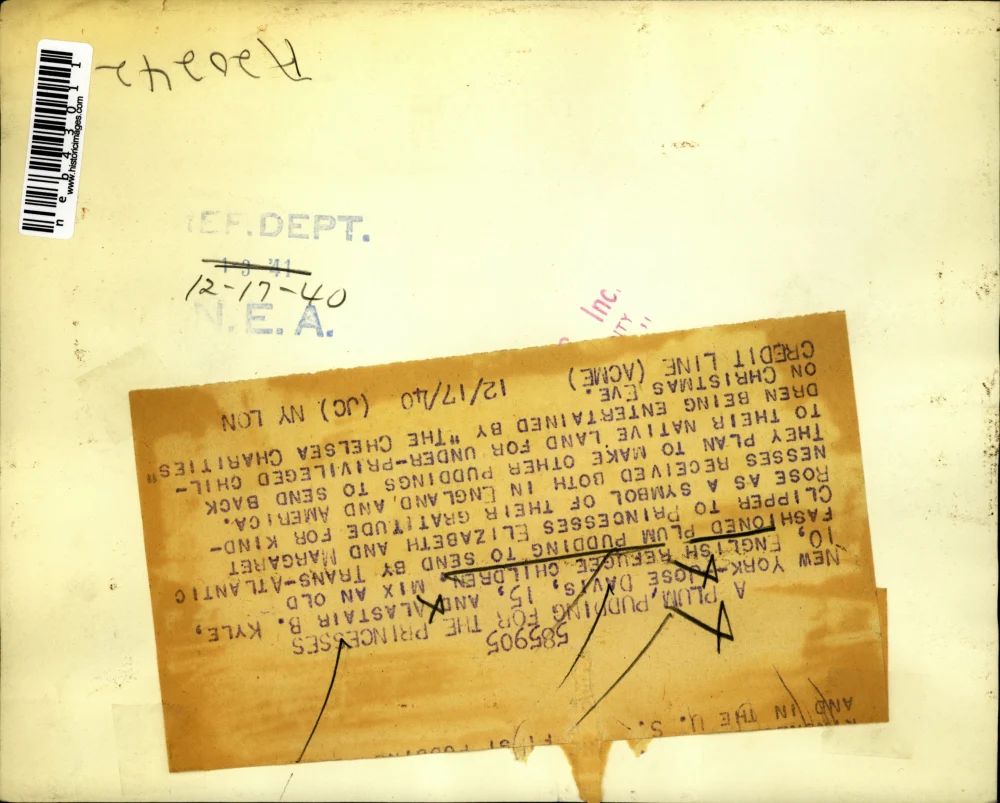 A20242
neb43011
www.historicimages.com
REF.DEPT.
1 3 '41
12-17-40
N.E.A.
Inc.
585905
A PLUM PUDDING FOR THE PRINCESSES
NEW YORK--JOSE DAVIS, 15, AND ALASTAIR B. KYLE,
10, ENGLISH REFUGEE CHILDREN, MIX AN OLD
FASHIONED PLUM PUDDING TO SEND BY TRANS-ATLANTIC
CLIPPER TO PRINCESSES ELIZABETH AND MARGARET
ROSE AS A SYMBOL OF THEIR GRATITUDE FOR KIND-
NESSES RECEIVED BOTH IN ENGLAND, AND AMERICA.
THEY PLAN TO MAKE OTHER PUDDINGS TO SEND BACK
TO THEIR NATIVE LAND FOR UNDER-PRIVILEGED CHIL-
DREN BEING ENTERTAINED BY "THE CHELSEA CHARITIES"
ON CHRISTMAS EVE.
CREDIT LINE (ACME) 12/17/40 (JC) NY LON
AND IN THE U. S.